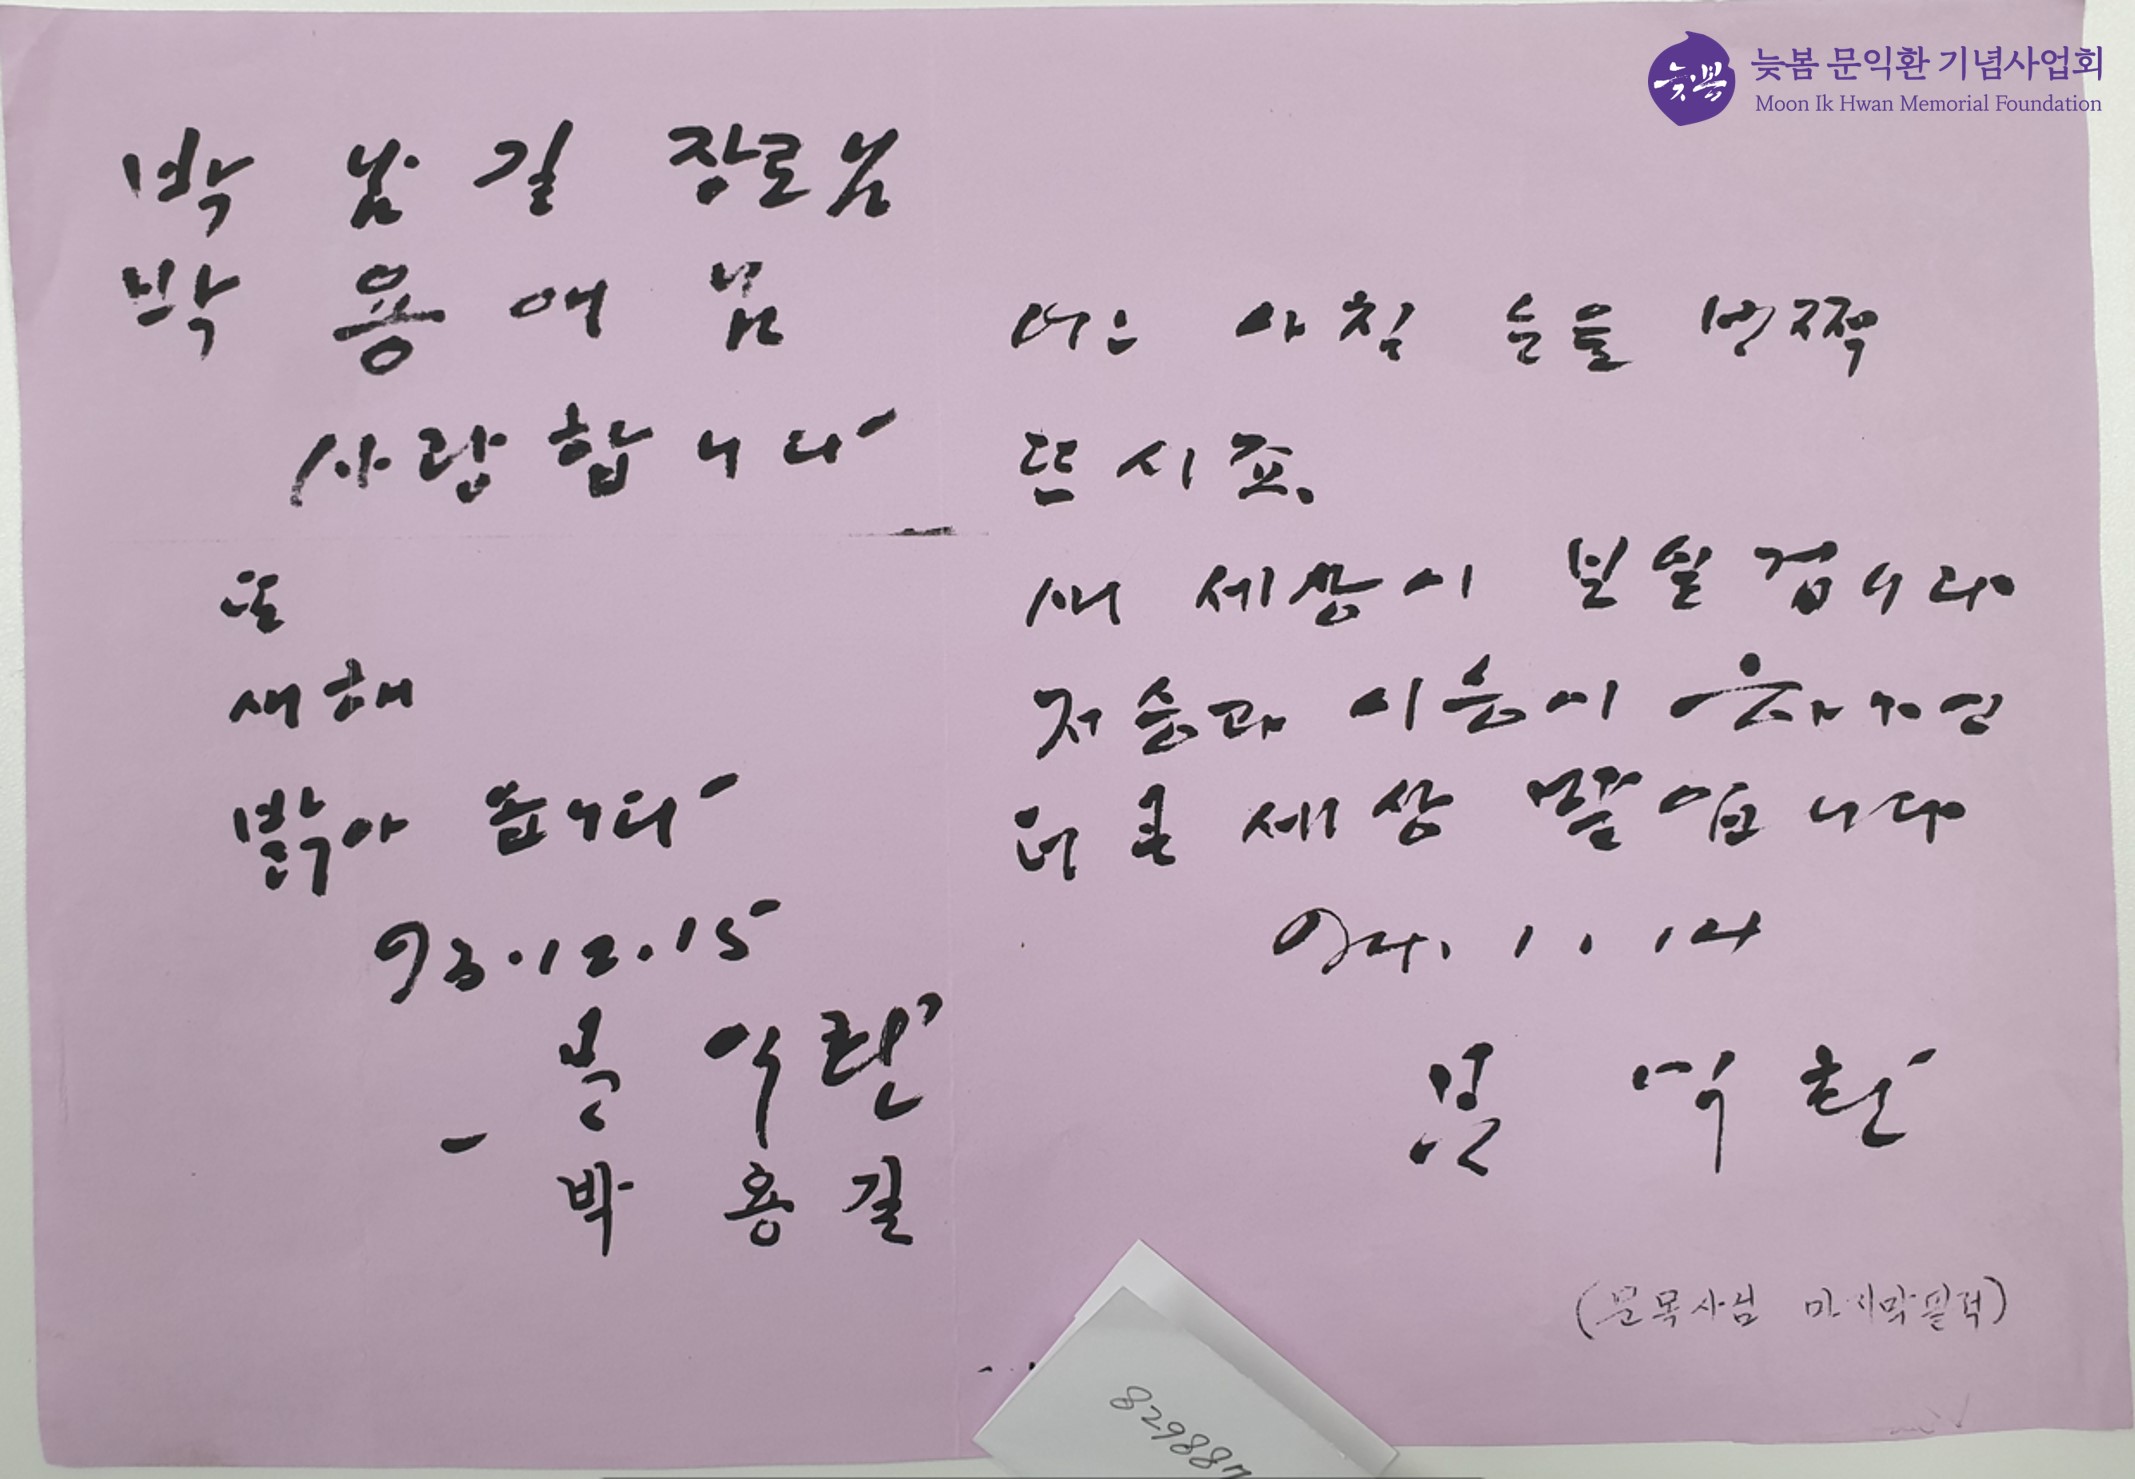 늦봄 문익환 기념사업회
Moon Ik Hwan Memorial Foundation
늦봄
박 남 길 장로님
박 용 애 님
사랑합니다
또
새해
밝아 옵니다
93.12.15
문 익환
박 용 길
어느 아침 눈을 번쩍
뜨시죠.
새 세상이 보일 겁니다
저승과 이승이 하나인
더 큰 세상 말입니다
94.1.14
문 익환
(문목사님 마지막필적)
829887